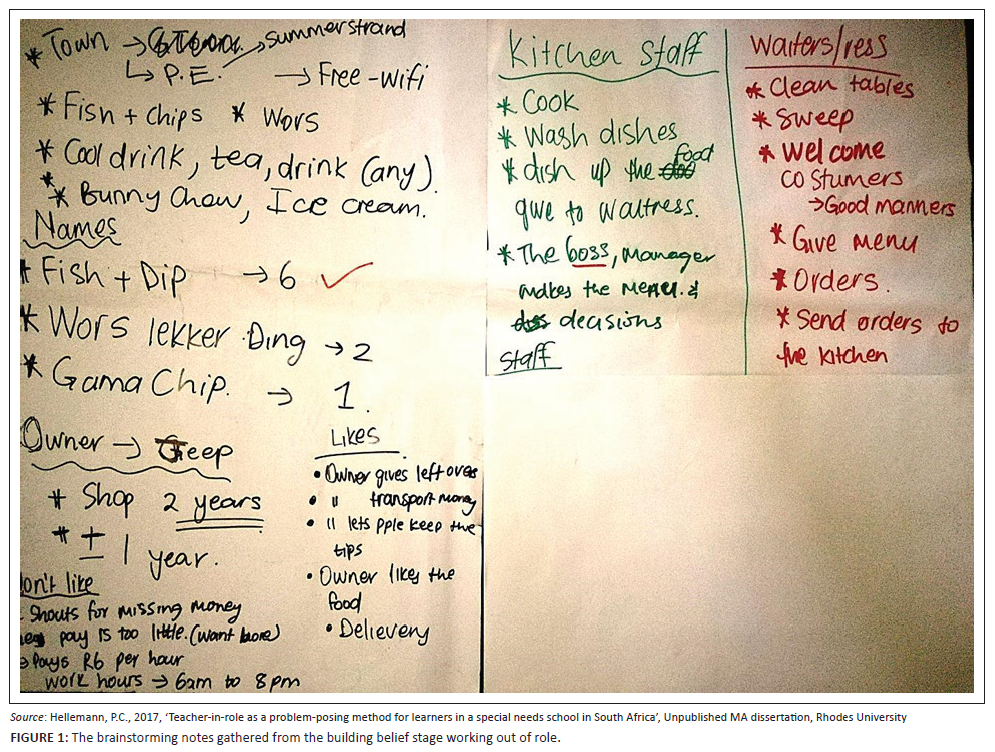 * Town → → summerstrand
↳ P.E. → Free-wifi
* Fish + chips * Wors
* Cool drink, tea, drink (any).
* * Bunny Chow, Ice cream.
Names
* Fish + Dip → 6 ✓
* Wors lekker Ding → 2
* Gama Chip. → 1.
Owner → Jeep
* Shop 2 years
* ± 1 year.
on't like
- Shouts for missing money
pay is too little. (want more)
→ Pays R6 per hour
work hours → 6am to 8pm
Likes
• Owner gives left overs
• " transport money
• " lets pple keep the
tips
• Owner likes the
food
• Delievery
Kitchen Staff
* Cook
* Wash dishes
* dish up the food
give to waitress.
* The boss, manager
makes the menu. &
decisions
Staff
Waiters/ress
* Clean tables
* Sweep
* Welcome
costumers
→ Good manners
* Give menu
* Orders.
* Send orders to
the kitchen
Source: Hellemann, P.C., 2017, ‘Teacher-in-role as a problem-posing method for learners in a special needs school in South Africa’, Unpublished MA dissertation, Rhodes University
FIGURE 1: The brainstorming notes gathered from the building belief stage working out of role.